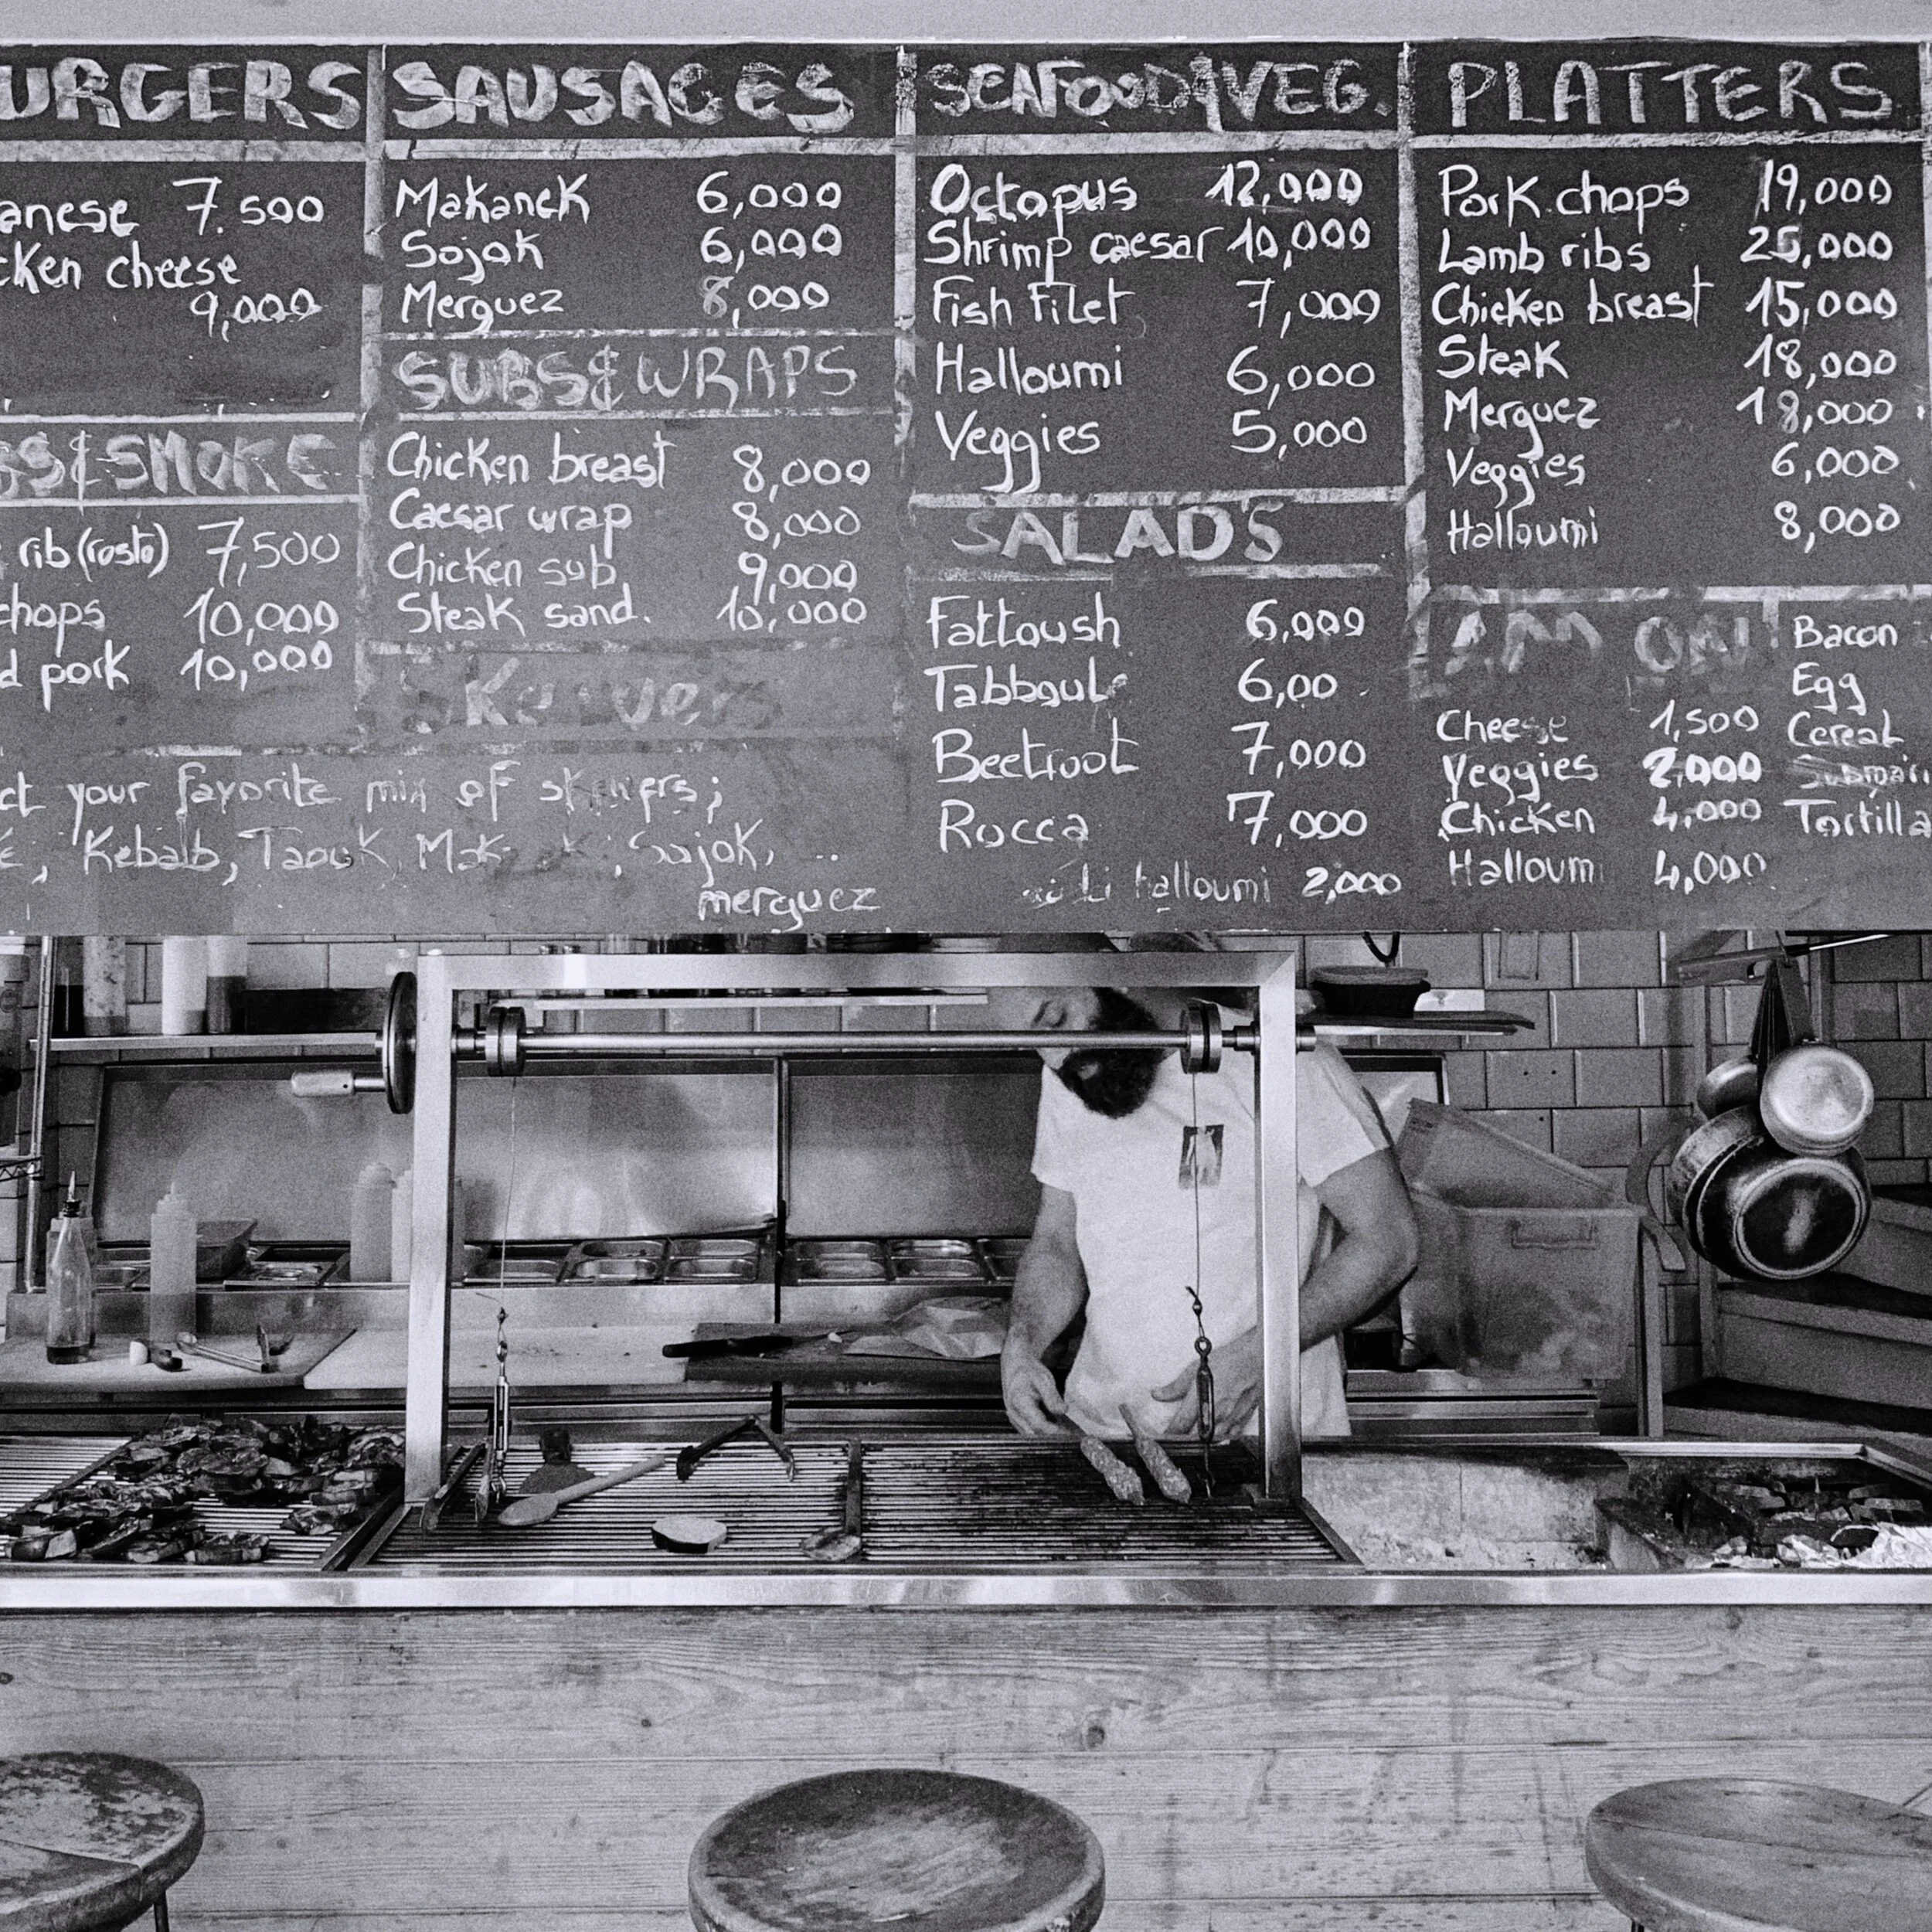 URGERS
anese 7.500
cken cheese
9,000
S&SMOKE
rib (rosto) 7,500
chops 10,000
d pork 10,000
SAUSAGES
Makanek 6,000
Sojok 6,000
Merguez 8,000
SUBS&WRAPS
Chicken breast 8,000
Caesar wrap 8,000
Chicken sub 9,000
Steak sand. 10,000
Skewers
ct your favorite mix of skewers;
Kebab, Taouk, Sojok, ..
merguez
SEAFOOD&VEG.
Octopus 12,000
Shrimp caesar 10,000
Fish Filet 7,000
Halloumi 6,000
Veggies 5,000
SALADS
Fattoush 6,000
Tabboule 6,00
Beetroot 7,000
Rocca 7,000
halloumi 2,000
PLATTERS
Pork chops 19,000
Lamb ribs 25,000
Chicken breast 15,000
Steak 18,000
Merguez 18,000
Veggies 6,000
Halloumi 8,000
ON!
Cheese 1,500
Veggies 2,000
Chicken 4,000
Halloumi 4,000
Bacon
Egg
Cereal
Tortilla